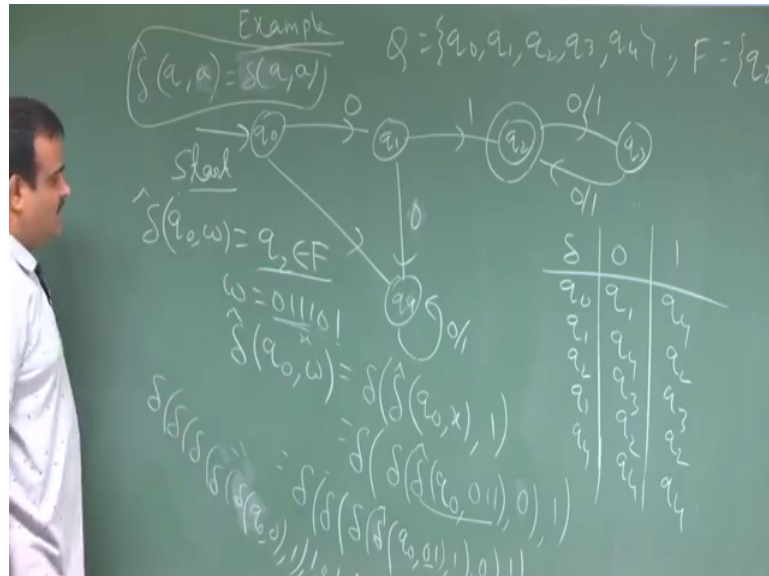 Example
δ̂(q, a) = δ(q, a)
Q = {q0, q1, q2, q3, q4}, F = {q2
0
1
0/1
q0
q1
q2
q3
Start
0/1
0
δ̂(q0, ω) = q2 ∈ F
q4
0/1
ω = 011101
x
δ̂(q0, ω) = δ(δ̂(q0, x), 1)
= δ(δ(δ̂(q0, 011), 0), 1)
= δ(δ(δ(δ̂(q0, 01), 1), 0), 1)
δ(δ(δ(δ(δ(q0, 0), 1), 1
δ 0 1
q0 q1 q4
q1 q4 q2
q2 q3 q3
q2 q2
q4 q4 q4